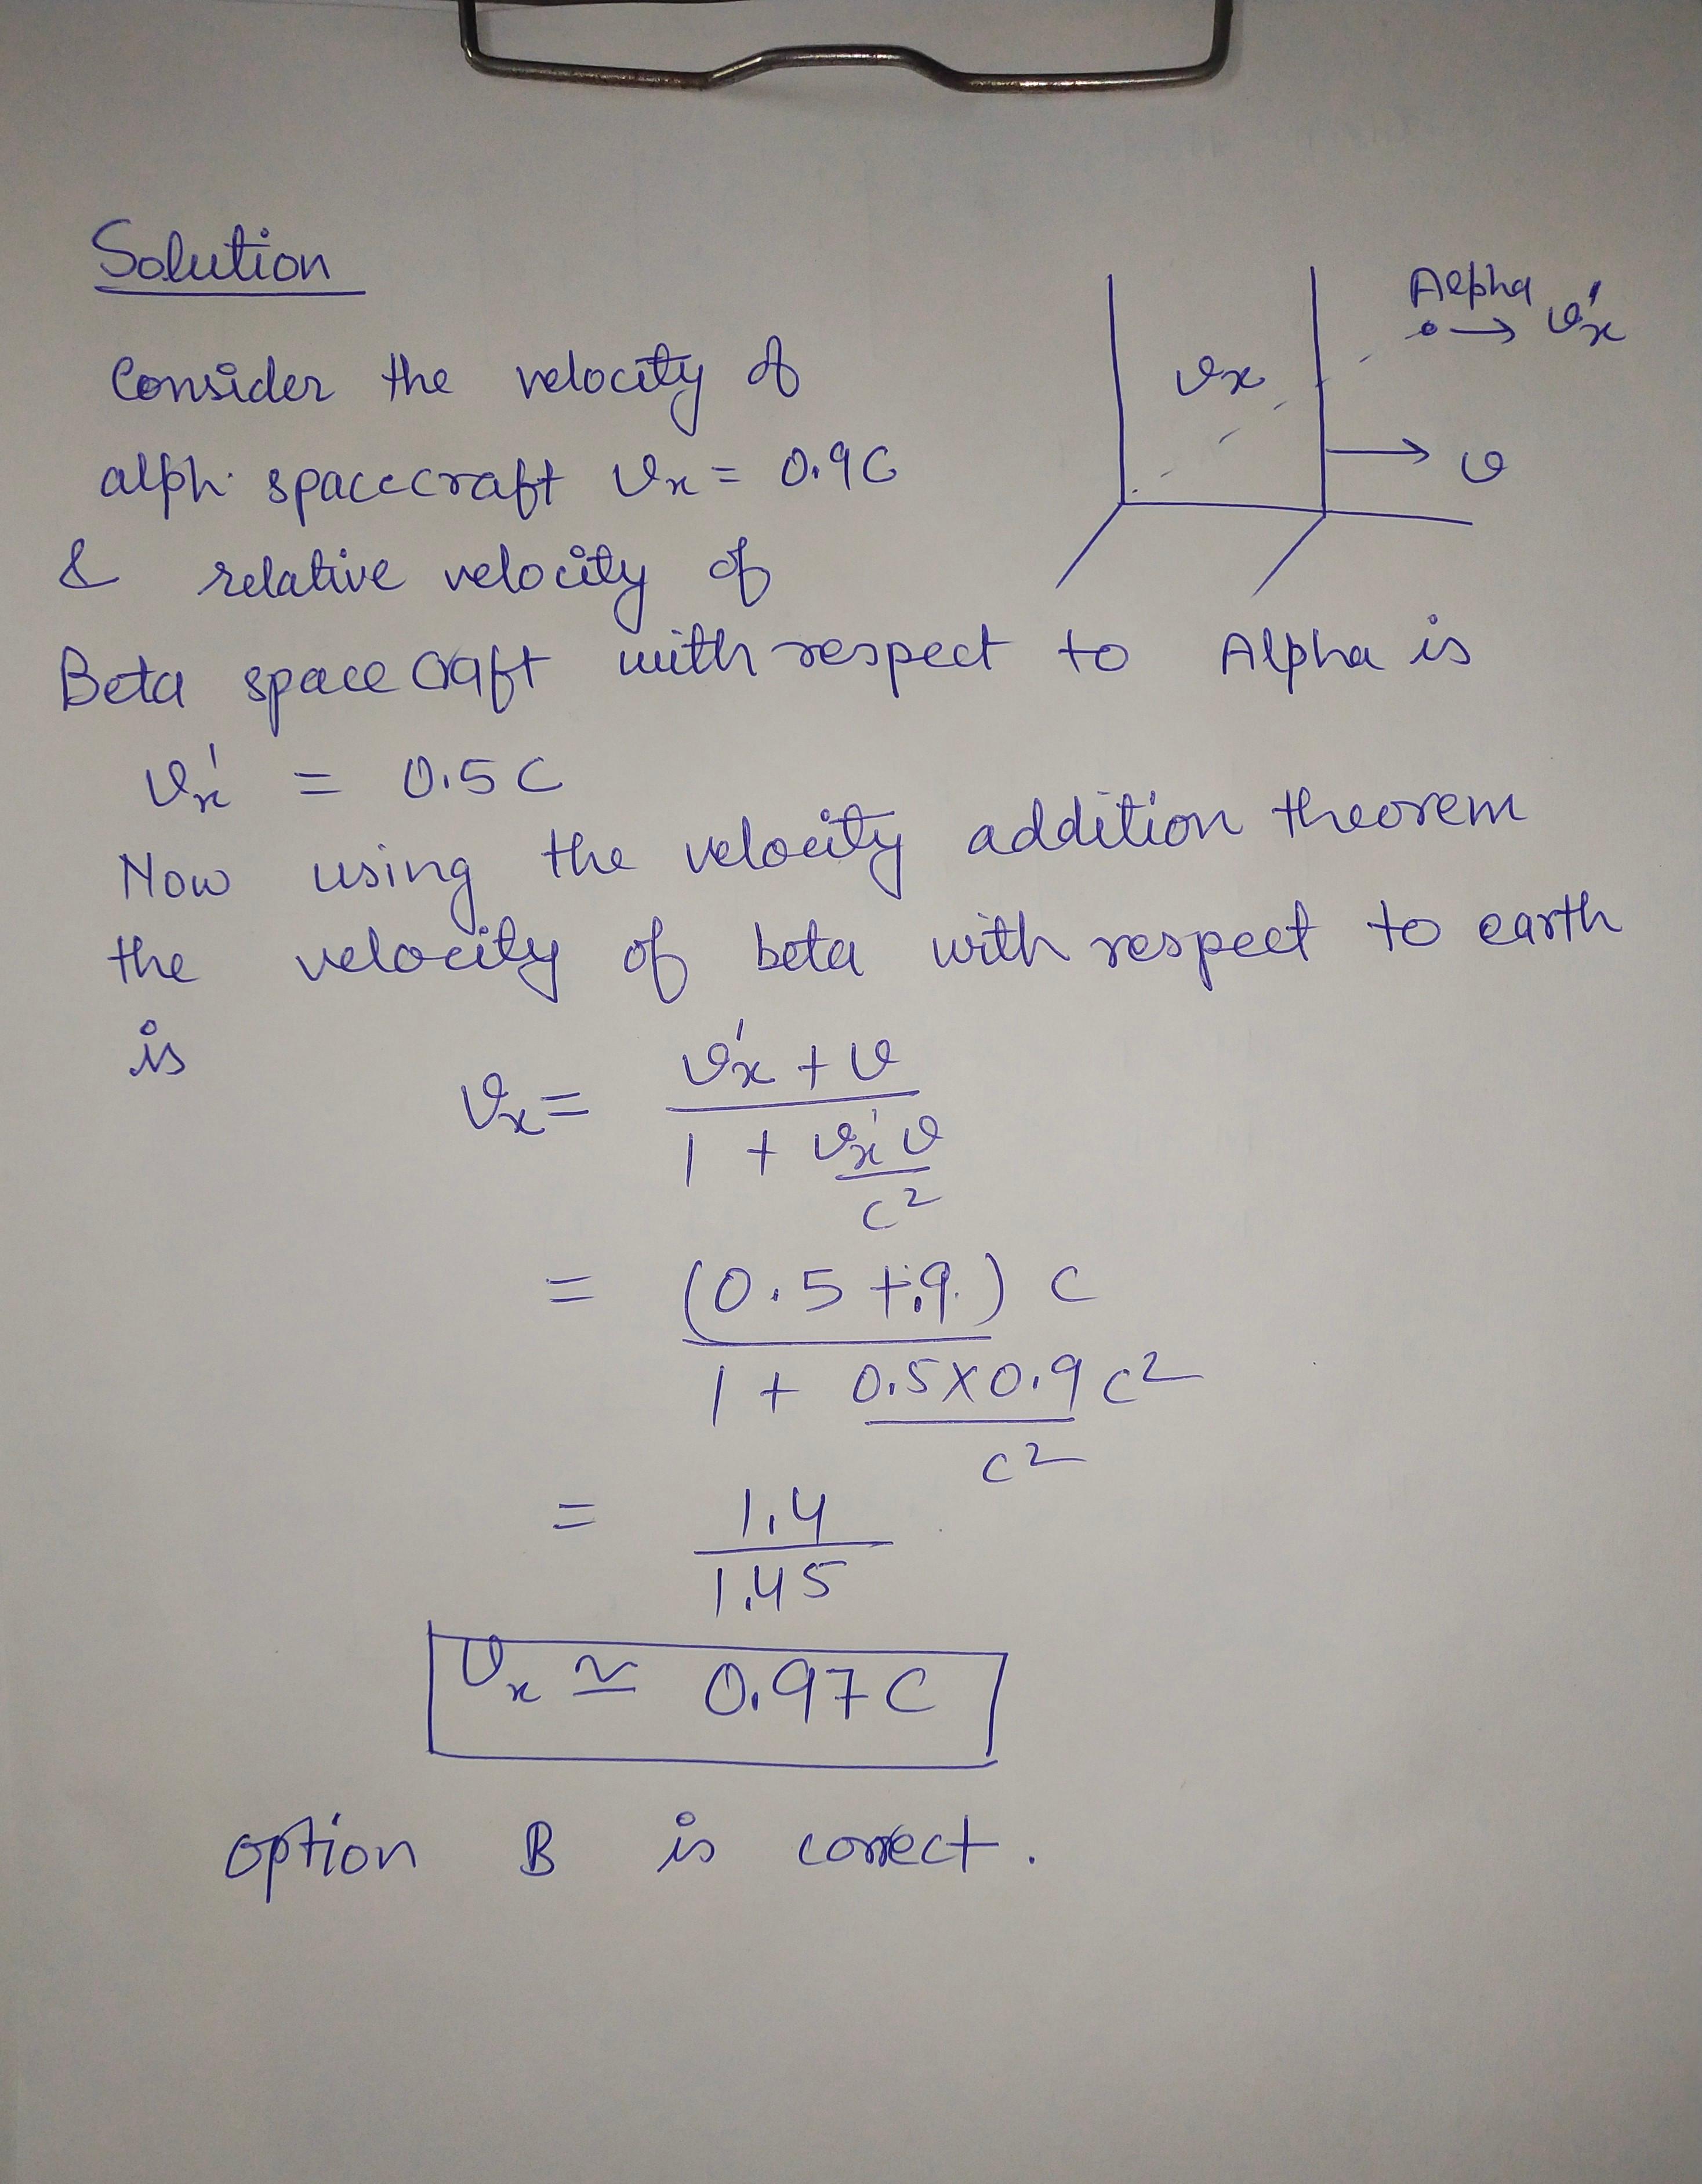 Solution
Consider the velocity of
alph spacecraft vx = 0.9C
& relative velocity of
Beta space craft with respect to Alpha is
vx' = 0.5C
Alpha
vx'
vx
v
Now using the velocity addition theorem
the velocity of beta with respect to earth
is
vx = vx' + v
1 + vx' v
c²
= (0.5 + .9) c
1 + 0.5×0.9 c²
c²
= 1.4
1.45
vx ≃ 0.97C
option B is correct.